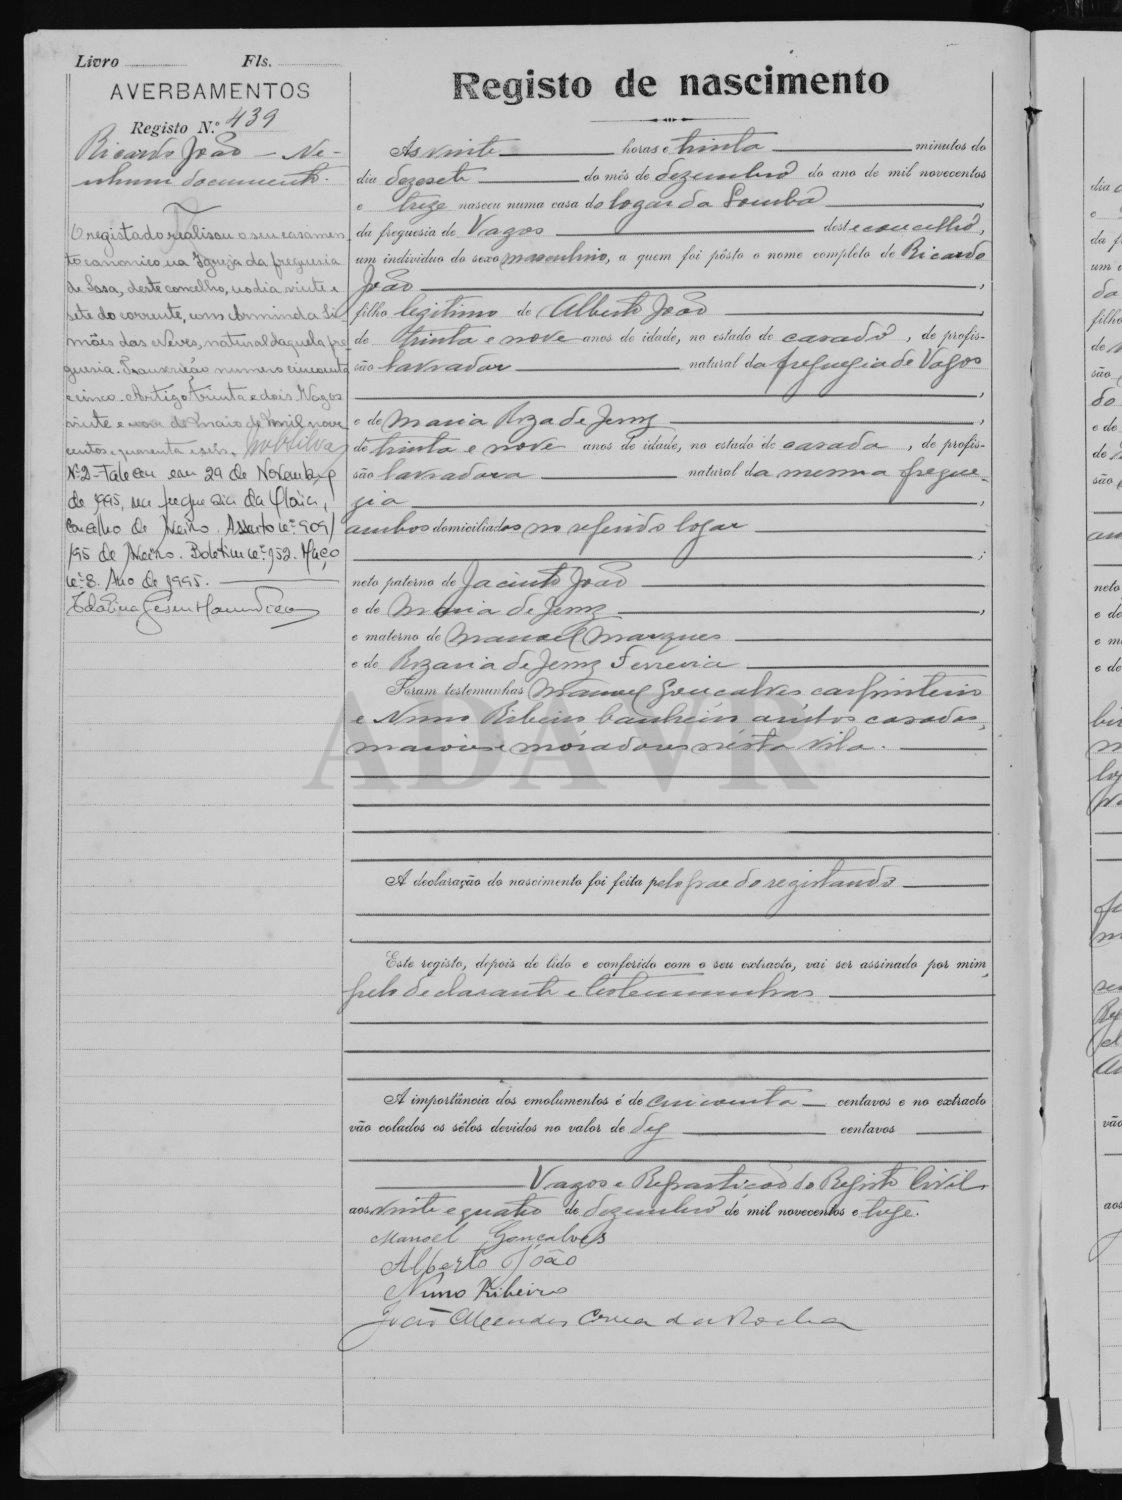 Livro Fls.
AVERBAMENTOS
Registo N.º 439
Ricardo João — Ne-
nhum documento.
O registado realisou o seu casamen-
to canonico na Igreja da freguesia
de Sosa, deste concelho, no dia vinte e
sete do corrente, com Arminda Si-
mões das Neves, natural daquela fre-
guesia. Transcrição numero cincoenta
e cinco. Artigo trinta e dois. Vagos
vinte e nove de Maio de mil nove
centos e quarenta e seis.
Nº2-Faleceu em 29 de Novembro
de 1995, na freguesia da Glória,
Concelho de Aveiro. Assento nº 909/
/95 de Aveiro. Boletim nº 152. Maço
nº 8. Ano de 1995.
Registo de nascimento
As vinte horas e trinta minutos do
dia dezesete do mês de dezembro do ano de mil novecentos
e treze nasceu numa casa do logar da Lomba,
da freguesia de Vagos deste concelho,
um individuo do sexo masculino, a quem foi pôsto o nome completo de Ricardo
João,
filho legitimo de Alberto João,
de trinta e nove anos de idade, no estado de casado, de profis-
são lavrador natural da freguesia de Vagos
,
e de Maria Roza de Jesus,
de trinta e nove anos de idade, no estado de casada, de profis-
são lavradora natural da mesma fregue-
zia,
ambos domiciliados no referido logar
;
neto paterno de Jacinto João
e de Maria de Jesus,
e materno de Manoel Marques
e de Rozaria de Jesus Ferreira
Foram testemunhas Manoel Gonçalves carpinteiro
e Nuno Ribeiro banheiro ambos casados,
maiores e moradores nésta vila.
A declaração do nascimento foi feita pelo pae do registando
Este registo, depois de lido e conferido com o seu extracto, vai ser assinado por mim,
pelo declarante e testemunhas
A importância dos emolumentos é de cincoenta centavos e no extracto
vão colados os sêlos devidos no valor de dez centavos
Vagos e Repartição do Registo Civil,
aos vinte e quatro de dezembro de mil novecentos e treze.
Manoel Gonçalves
Alberto João
Nuno Ribeiro
João Mendes Correa da Rocha
ADAVR